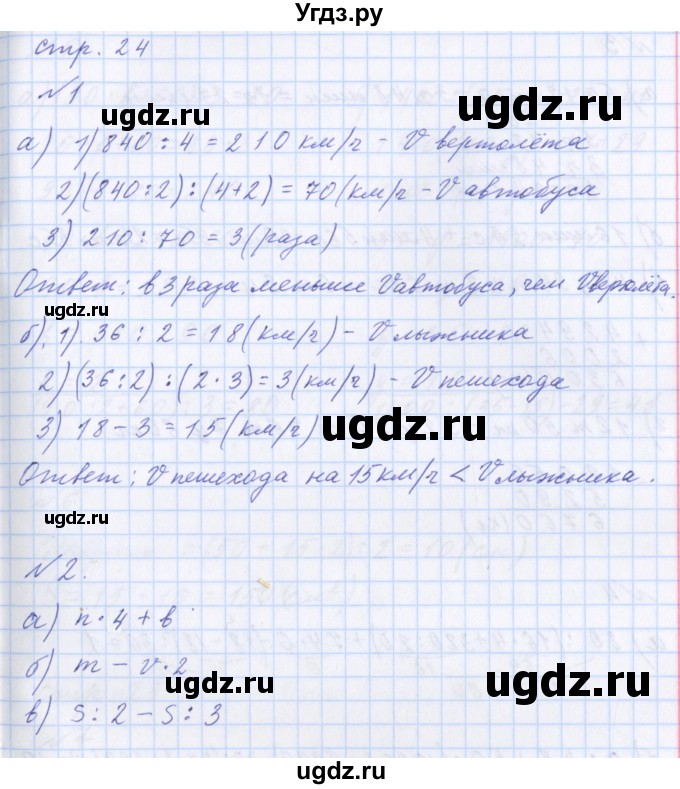 Угдз.ру
стр. 24
№1
а) 1) 840 : 4 = 210 км/ч - V вертолёта
2) (840:2) : (4+2) = 70 (км/ч - V автобуса
3) 210 : 70 = 3 (раза)
Ответ: в 3 раза меньше Vавтобуса, чем Vвертолёта.
б). 1). 36 : 2 = 18 (км/ч) - V лыжника
2) (36:2) : (2·3) = 3 (км/ч) - V пешехода
3) 18 - 3 = 15 (км/ч)
Ответ: V пешехода на 15 км/ч < V лыжника.
№2.
а) n·4 + b
б) m - v·2
в) S : 2 - S : 3
ugdz.ru
ugdz.ru
ugdz.ru
ugdz.ru
ugdz.ru
ugdz.ru
ugdz.ru
ugdz.ru
ugdz.ru
ugdz.ru
ugdz.ru
ugdz.ru
ugdz.ru